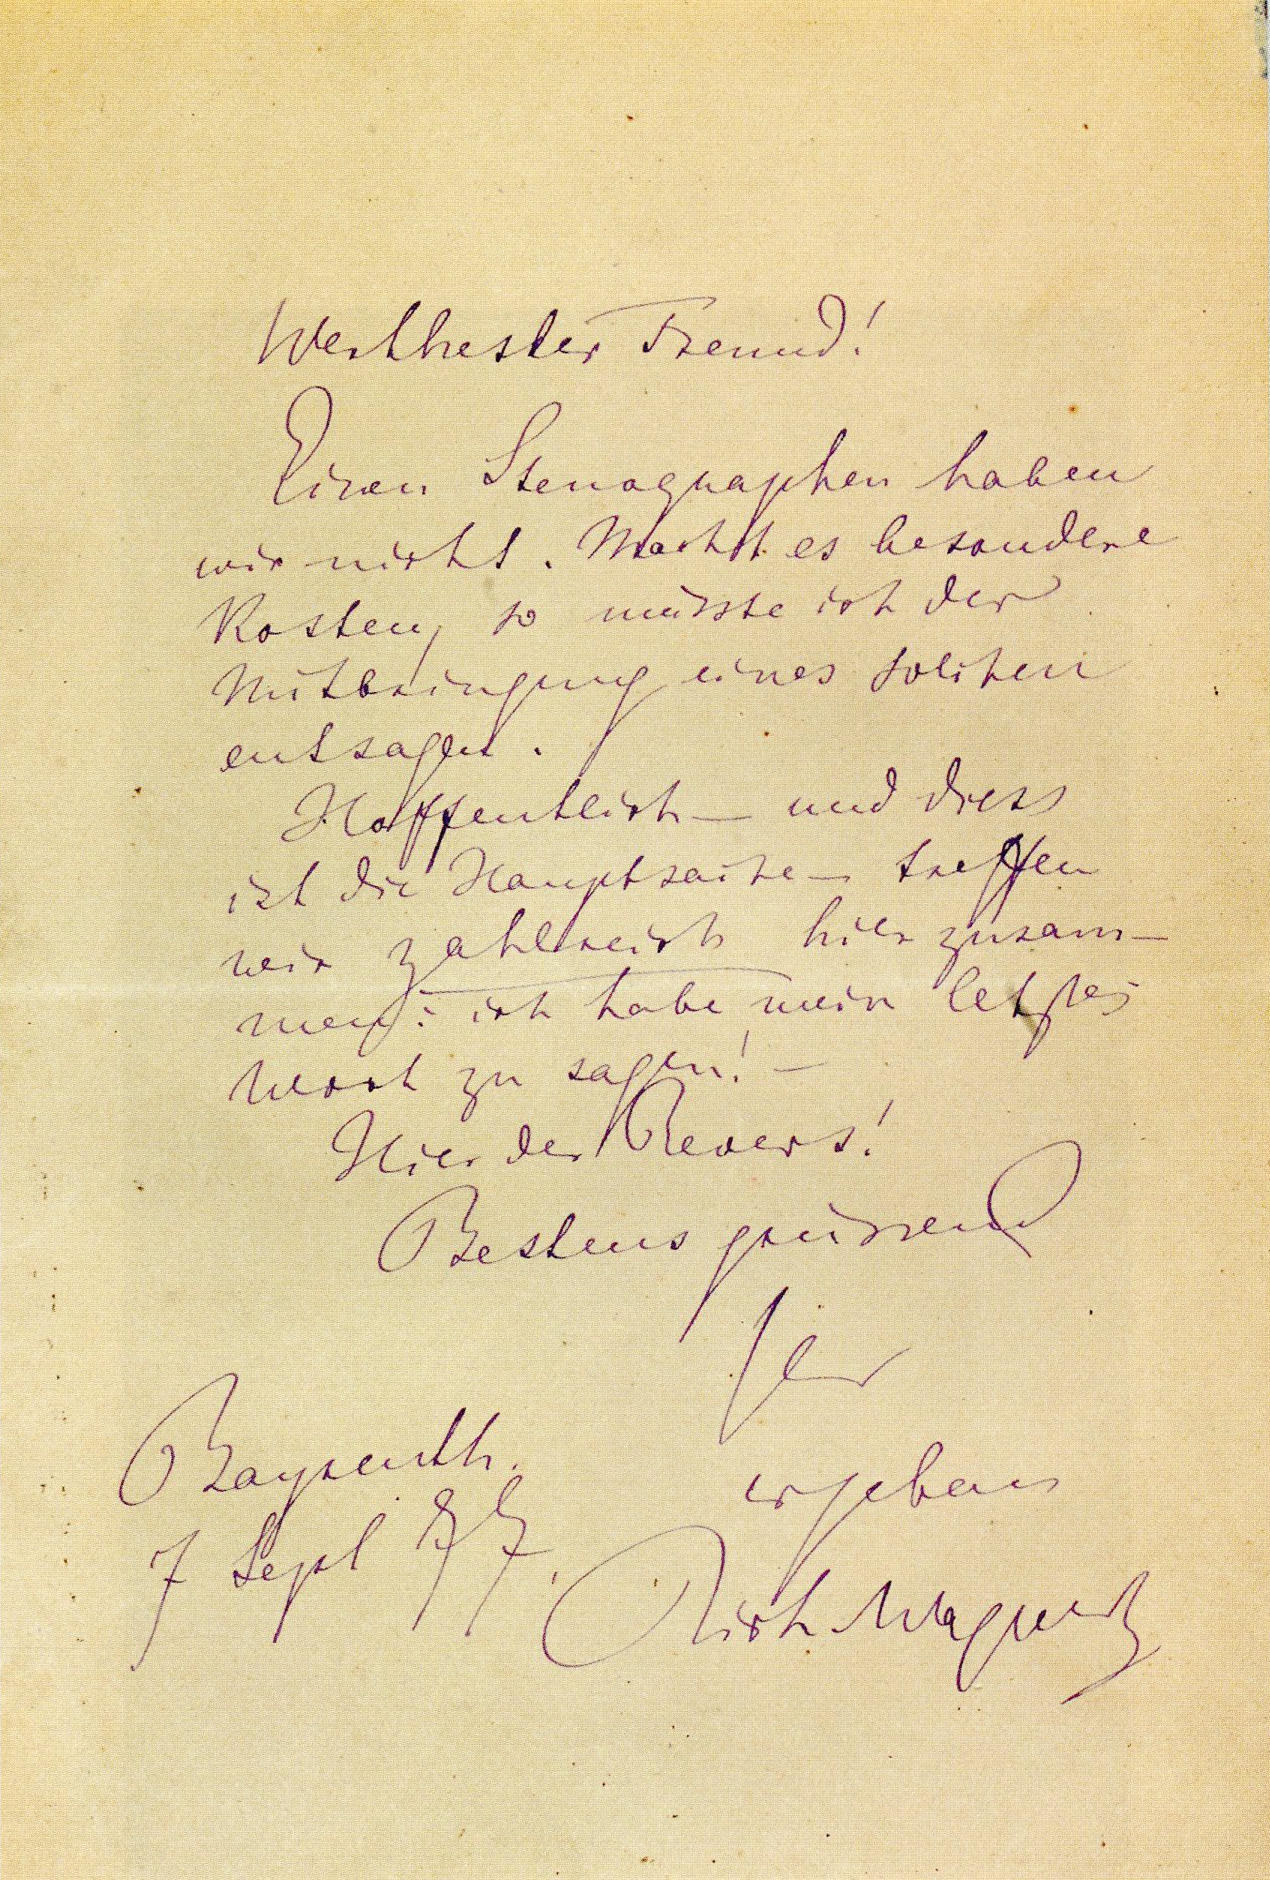 Werthester Freund!
Einen Stenographen haben
wir nicht. Macht es besondere
Kosten, so müsste ich der
Mitbringung eines solchen
entsagen.
Hoffentlich — und diess
ist die Hauptsache — treffen
wir zahlreich hier zusam-
men: ich habe mein letztes
Wort zu sagen! —
Hier der Revers!
Bestens grüssend
Ihr
Bayreuth.
ergebens
7 Sept 77.
Rich Wagner